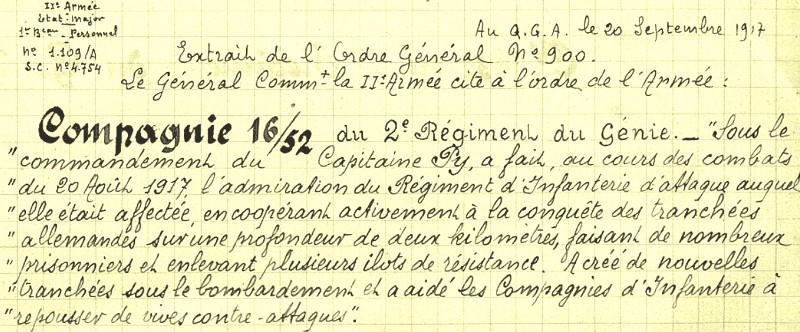 IIe Armée
Etat-Major
1er Beau - Personnel
No 1.109/A
S.C. No 4.754
Au Q.G.A. le 20 Septembre 1917
Extrait de l'Ordre Général No 900.
Le Général Commt la IIe Armée cite à l'ordre de l'Armée :
Compagnie 16/52 du 2e Régiment du Génie. _ "Sous le
"commandement du Capitaine Py, a fait, au cours des combats
"du 20 Août 1917 l'admiration du Régiment d'Infanterie d'attaque auquel
"elle était affectée, en coopérant activement à la conquête des tranchées
"allemandes sur une profondeur de deux kilomètres, faisant de nombreux
"prisonniers et enlevant plusieurs ilots de résistance. A créé de nouvelles
"tranchées sous le bombardement et a aidé les Compagnies d'Infanterie à
"repousser de vives contre-attaques".